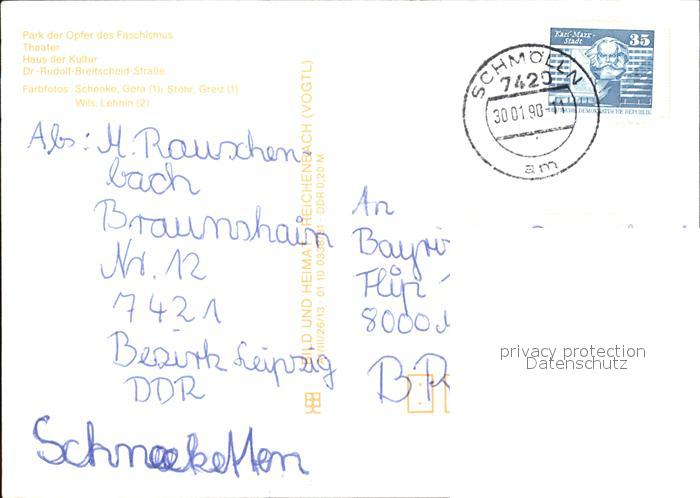 Park der Opfer des Faschismus
Theater
Haus der Kultur
Dr.-Rudolf-Breitscheid-Straße
Farbfotos: Schenke, Gera (1), Stöhr, Greiz (1)
Wils, Lehnin (2)
Karl-Marx-
Stadt
35
DEUTSCHE DEMOKRATISCHE REPUBLIK
SCHMÖLLN
7420
30.01.90-11
am
BILD UND HEIMAT REICHENBACH (VOGTL)
DDR 0,20 M
Abs: M. Rauschen-
bach
Braunshain
Nr. 12
7421
Bezirk Leipzig
DDR
Schneeketten
An
Flip
8000
privacy protection
Datenschutz